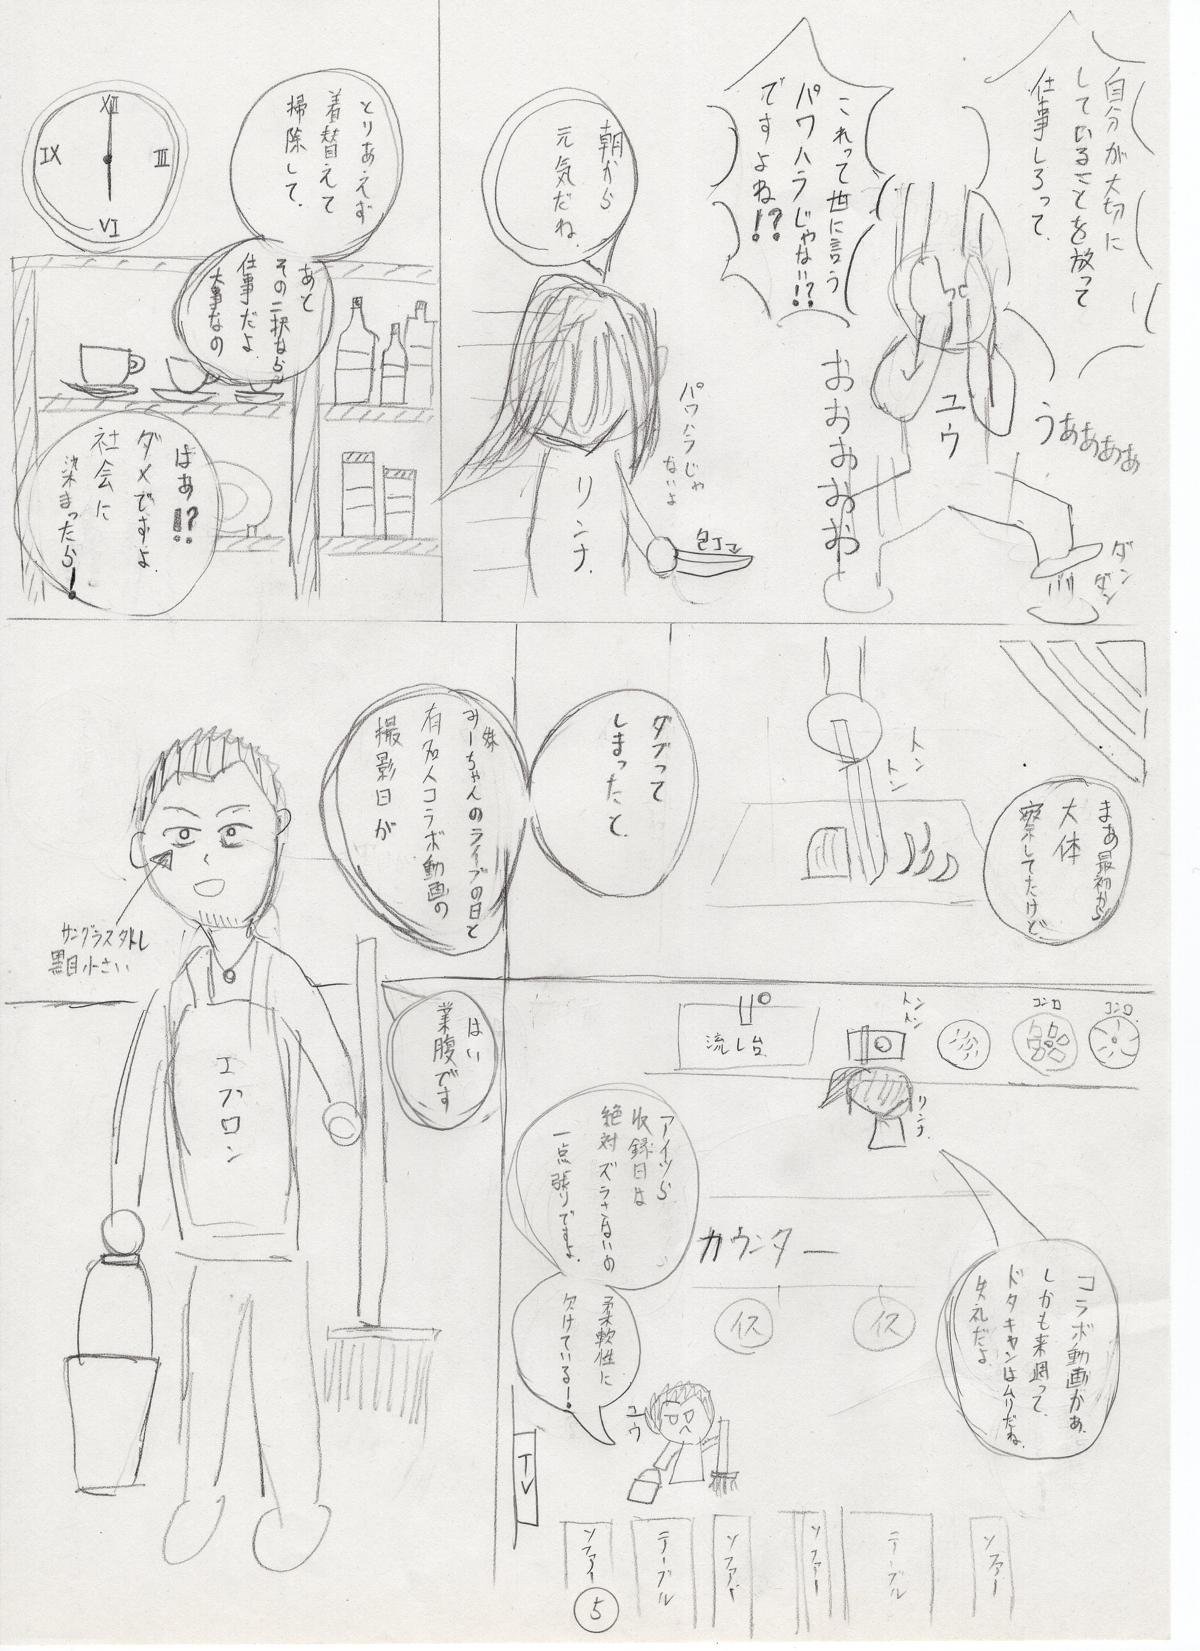 自分が大切に
していることを放って
仕事しろって、
これって世に言う
パワハラじゃない!?
ですよね!?
うぁぁぁぁぁ
おおおおおお
ユウ
ダン
ダン
朝から
元気だね。
パワハラじゃ
ないよ
包丁
リンナ
とりあえず
着替えて
掃除して、
あと
その二択なら
仕事だよ、
大事なの
はぁ!?
ダメですよ、
社会に
染まったら!
XII
III
VI
IX
まあ最初から
大体
察してたけど
トン
トン
ダブって
しまったと、
妹
みーちゃんのライブの日と
有名人コラボ動画の
撮影日が
サングラス外し
黒目小さい
エプロン
はい
業腹です
コンロ
コンロ
トン
トン
流し台
リンナ
コラボ動画かぁ、
しかも来週って、
ドタキャンはムリだね、
失礼だよ
アイツら
収録日は
絶対ズラさないの
一点張りですよ、
柔軟性に
欠けている!
カウンター
イス
イス
ユウ
TV
ソファー
テーブル
ソファー
ソファー
テーブル
ソファー
5